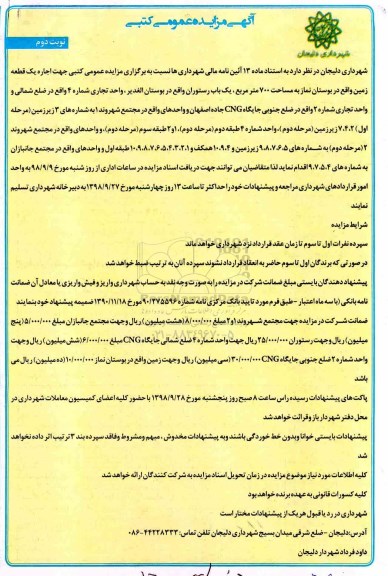 آگهی مزایده عمومی کتبی
نوبت دوم
شهرداری دلیجان
شهرداری دلیجان در نظر دارد به استناد ماده ۱۳ آئین نامه مالی شهرداری ها نسبت به برگزاری مزایده عمومی کتبی جهت اجاره یک قطعه
زمین واقع در بوستان نماز به مساحت ۷۰۰ متر مربع ، یک باب رستوران واقع در بوستان الغدیر ، واحد تجاری شماره ۴ واقع در ضلع شمالی و
واحد تجاری شماره ۲ واقع در ضلع جنوبی جایگاه CNG جاده اصفهان و واحدهای واقع در مجتمع شهروند ۱ به شماره های ۳ زیر زمین (مرحله
اول) ۷،۴،۲ زیر زمین (مرحله دوم)، واحد شماره ۴ طبقه دوم (مرحله دوم)، ۱و ۲ طبقه سوم (مرحله دوم)، و واحدهای واقع در مجتمع شهروند
۲ (مرحله دوم) به شماره های ۹،۸،۷،۶،۵ زیرزمین و ۱۰،۹،۴ همکف و ۱۰،۹،۸،۷،۶،۵،۴،۳،۲،۱ طبقه اول و واحدهای واقع در مجتمع جانبازان
به شماره های ۹،۷،۵،۴ اقدام نماید لذا متقاضیان می توانند جهت دریافت اسناد مزایده در ساعات اداری از روز شنبه مورخ ۹۸/۹/۹ به واحد
امور قراردادهای شهرداری مراجعه و پیشنهادات خود را حداکثر تا ساعت ۱۳ روز چهارشنبه مورخ ۱۳۹۸/۹/۲۷ به دبیرخانه شهرداری تسلیم
نمایند
شرایط مزایده
سپرده نفرات اول تا سوم تا زمان عقد قرارداد نزد شهرداری خواهد ماند
در صورتی که برندگان اول تا سوم حاضر به انعقاد قرارداد نشوند سپرده آنان به ترتیب ضبط خواهد شد
پیشنهاد دهندگان بایستی مبلغ ضمانت شرکت در مزایده را به صورت وجه نقد به حساب شهرداری واریز و فیش واریزی یا معادل آن ضمانت
نامه بانکی (با سه ماه اعتبار - طبق فرم مورد تایید بانک مرکزی نامه شماره ۹۰/۲۷۵۵۹۶ مورخ ۱۳۹۰/۱۱/۱۸) ضمیمه پیشنهاد خود بنمایند
ضمانت شرکت در مزایده جهت مجتمع شهروند (۱و۲ مبلغ ۸/۰۰۰/۰۰۰(هشت میلیون) ریال وجهت مجتمع جانبازان مبلغ ۵/۰۰۰/۰۰۰ (پنج
میلیون) ریال وجهت رستوران ۲۵/۰۰۰/۰۰۰ ریال جهت واحد شماره ۴ ضلع شمالی جایگاه CNG مبلغ ۶/۰۰۰/۰۰۰ (شش میلیون) ریال وجهت
واحد شماره ۲ ضلع جنوبی جایگاه CNG ۳۰/۰۰۰/۰۰۰ (سی میلیون) ریال و جهت زمین واقع در بوستان نماز ۱۰/۰۰۰/۰۰۰ (ده میلیون) ریال می
باشد
پاکت های پیشنهادات رسیده راس ساعت ۸ صبح روز پنجشنبه مورخ ۱۳۹۸/۹/۲۸ با حضور کلیه اعضای کمیسیون معاملات شهرداری در
محل دفتر شهردار باز و قرائت خواهد شد
پیشنهادات بایستی خوانا وبدون خط خوردگی باشند وبه پیشنهادات مخدوش ، مبهم ومشروط وفاقد سپرده بند ۳ ترتیب اثر داده نخواهد
شد
کلیه اطلاعات مورد نیاز موضوع مزایده در زمان تحویل اسناد مزایده به شرکت کنندگان ارائه خواهد شد
کلیه کسورات قانونی به عهده برنده خواهد بود
شهرداری در رد یا قبول هر یک از پیشنهادات مختار است
آدرس: دلیجان - ضلع شرقی میدان بسیج شهرداری دلیجان تلفن تماس: ۴۴۲۲۸۳۳۳-۰۸۶
داود فرداد شهردار دلیجان